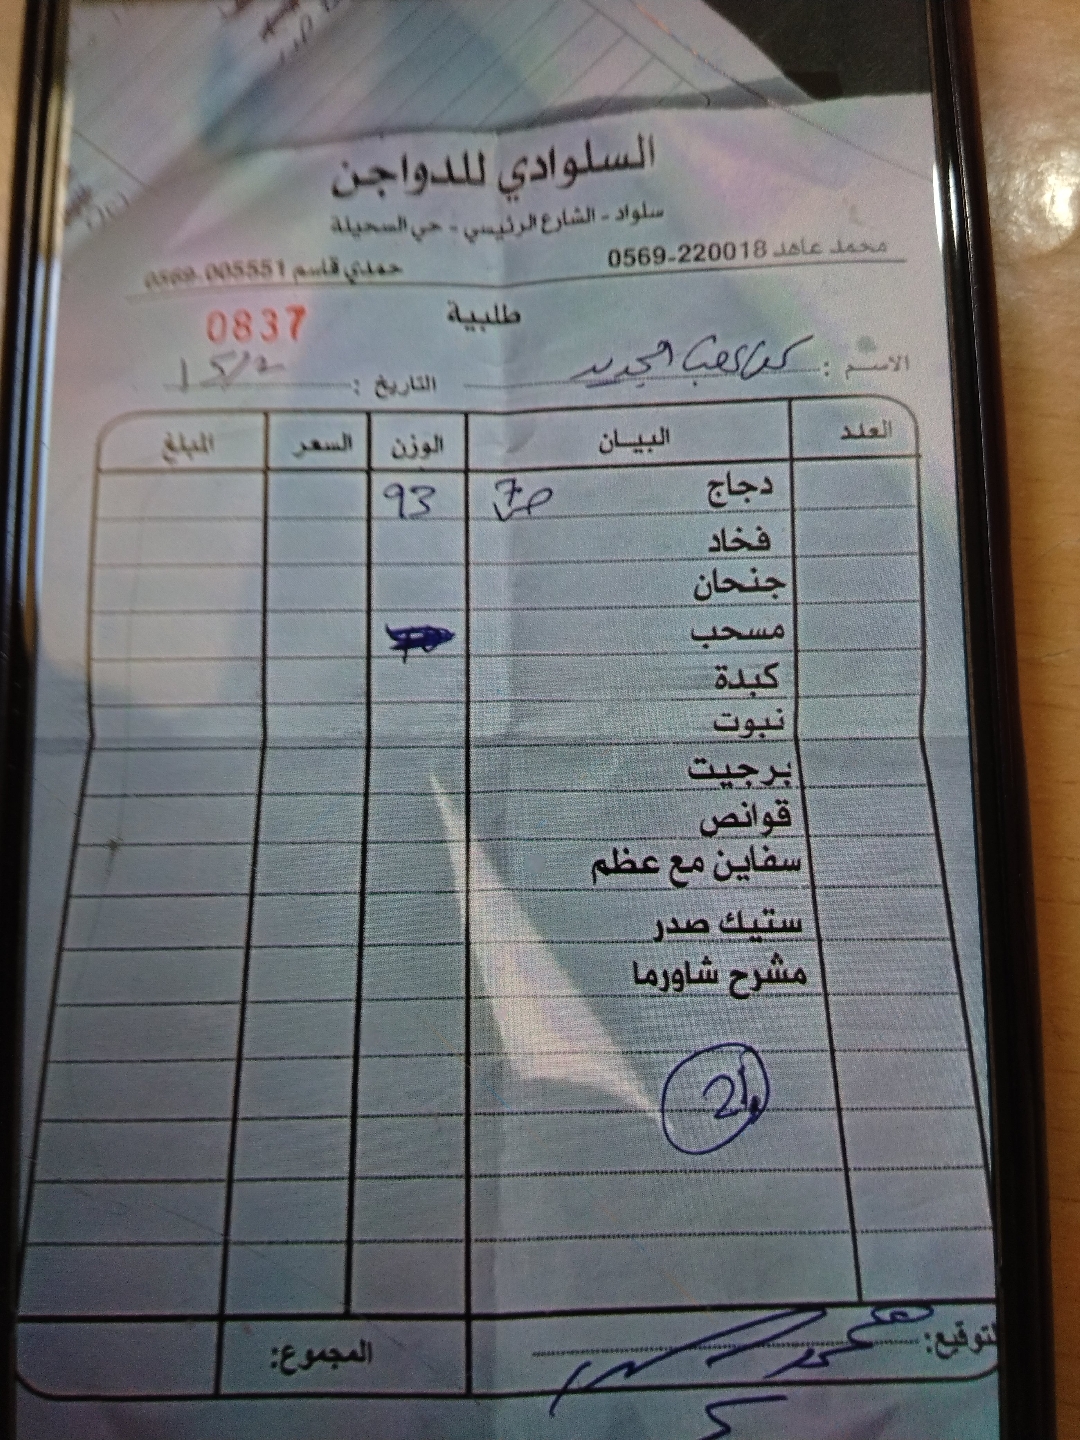 السلوادي للدواجن
سلواد - الشارع الرئيسي - حي السحيلة
محمد عاهد 0569-220018 حمدي قاسم 0569-005551
طلبية 0837
الاسم: التاريخ: 15/2
العدد البيـــان الوزن السعر المبلغ
دجاج 93
فخاد
جنحان
مسحب
كبدة
نبوت
برجيت
قوانص
سفاين مع عظم
ستيك صدر
مشرح شاورما
التوقيع: المجموع: